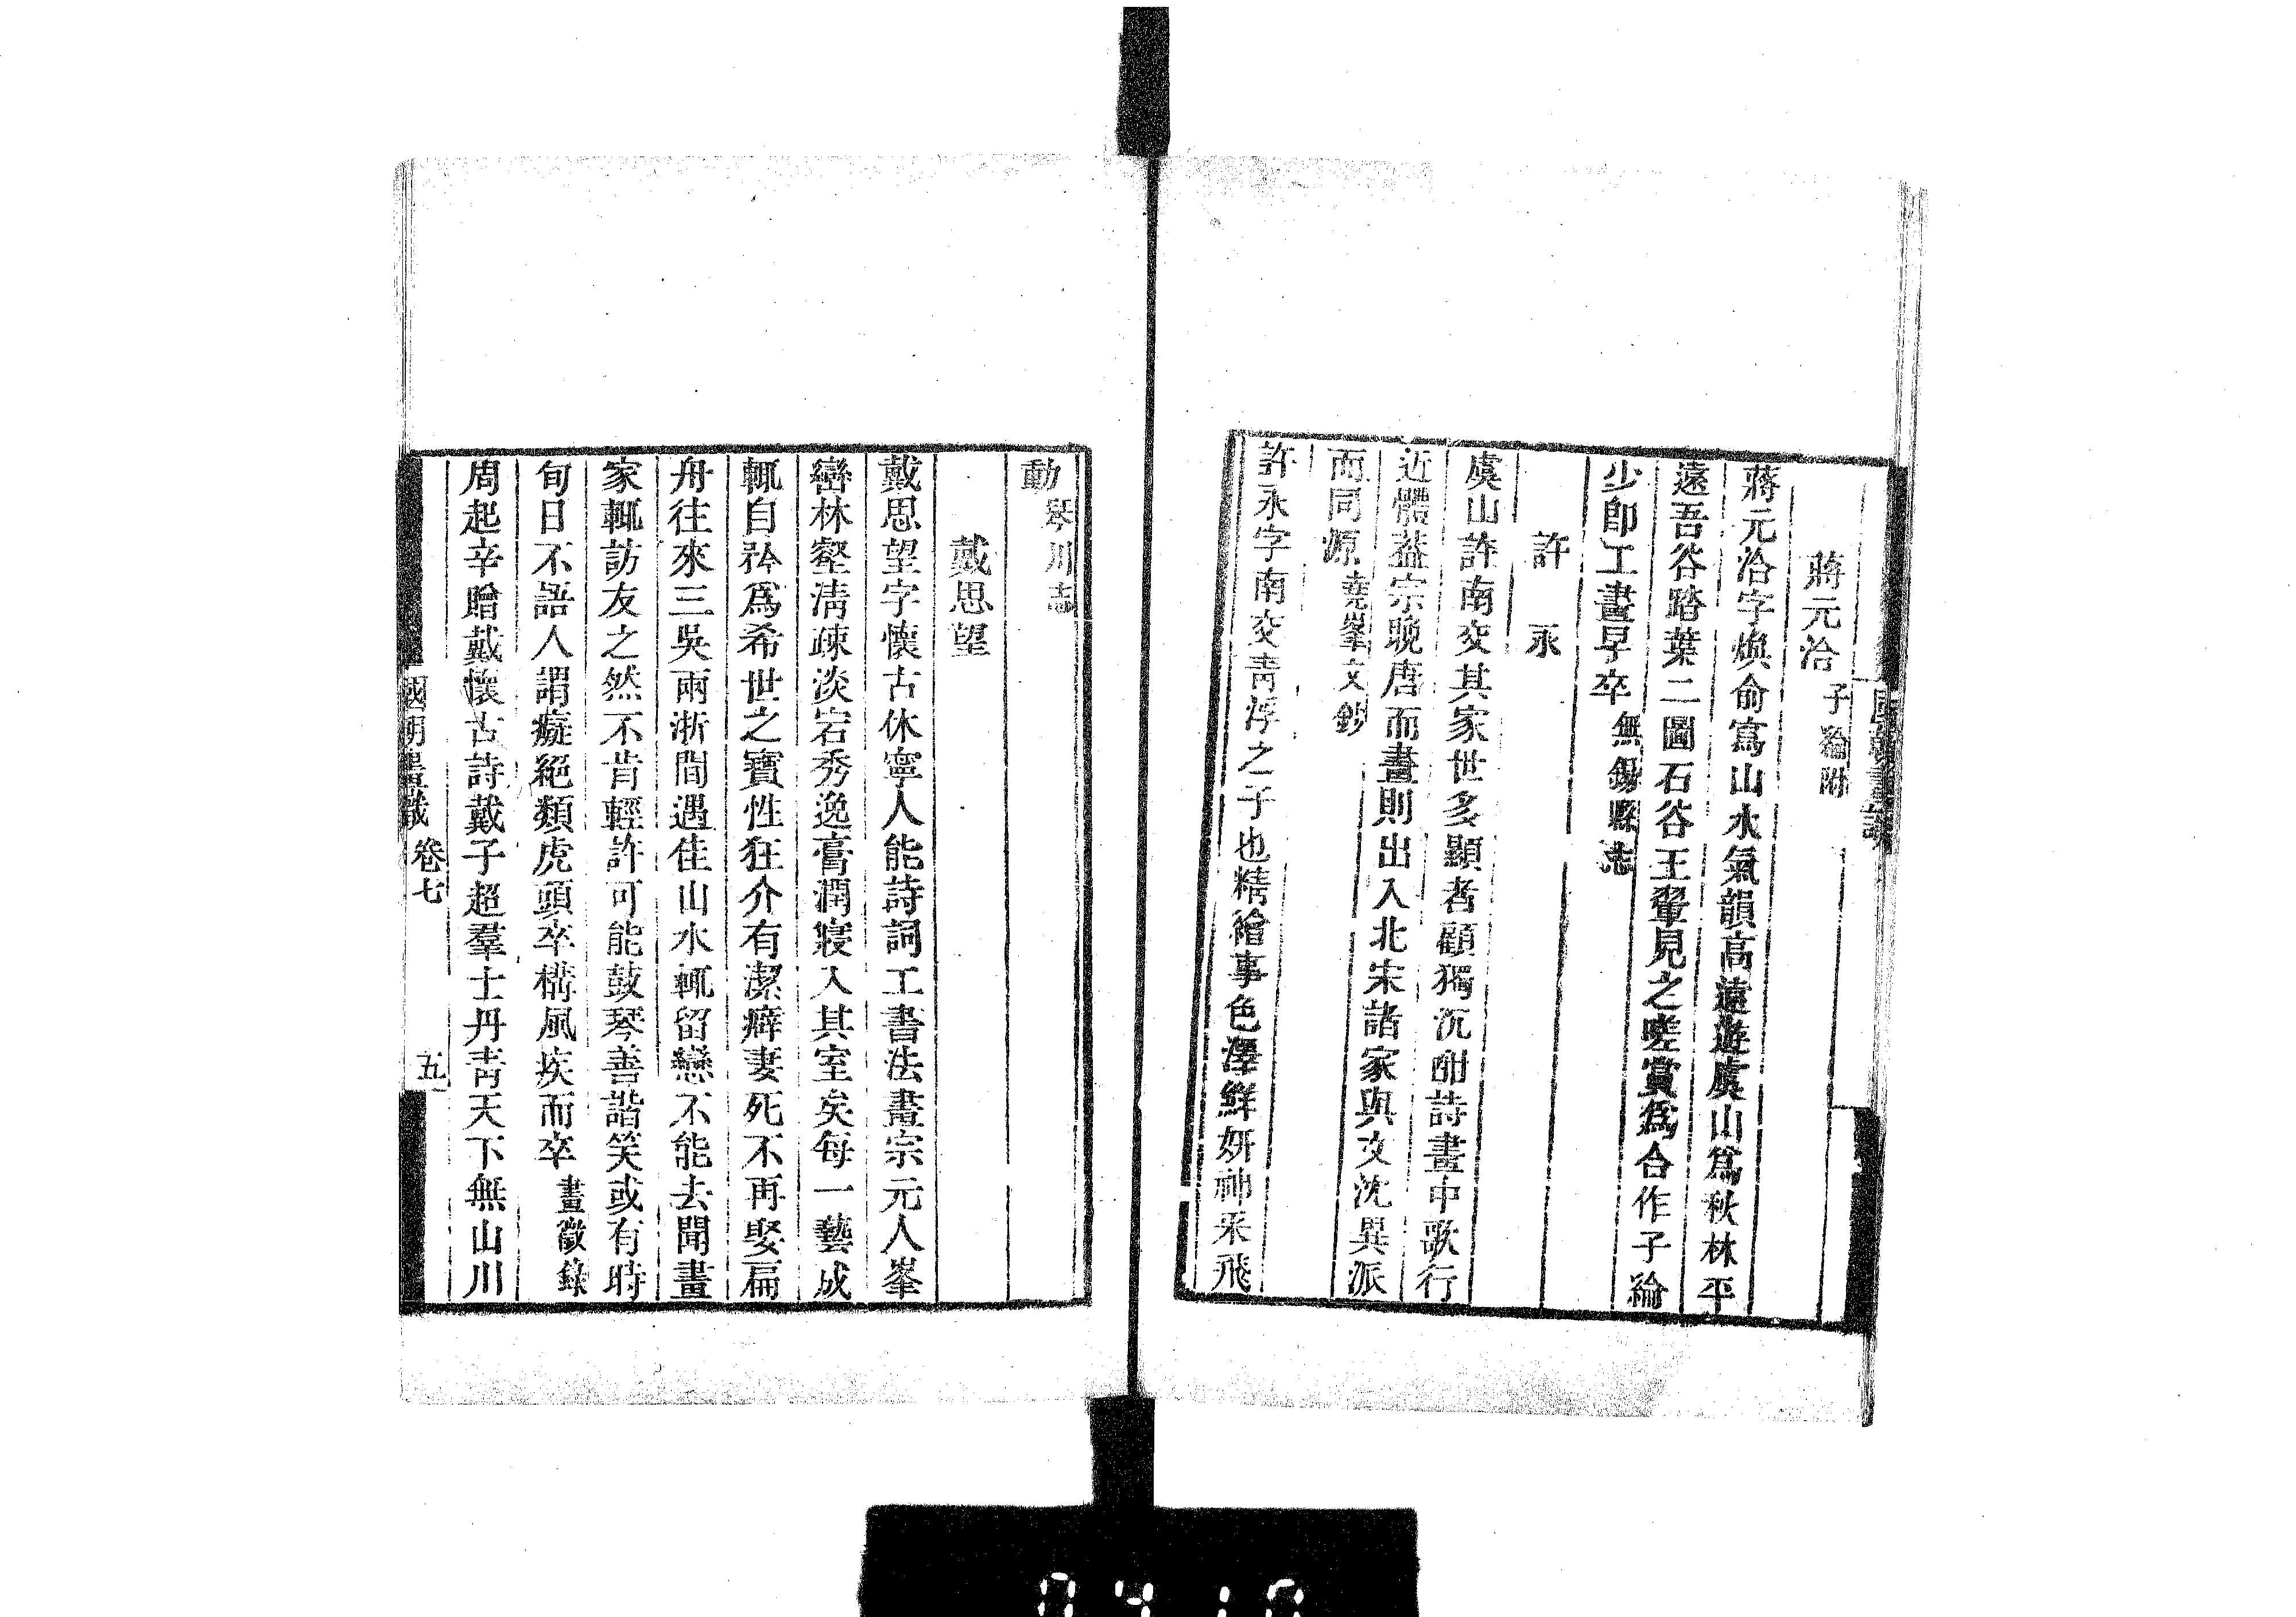 蔣元洽子綸附
蔣元洽字煥俞寫山水氣韻高遠遊虞山爲秋林平
遠吾谷踏葉二圖石谷王翬見之嗟賞爲合作子綸
少卽工畫早卒無錫縣志
許永
虞山許南交其家世多顯者顧獨沉酣詩畫中歌行
近體葢宗晚唐而畫則出入北宋諸家與文沈異派
而同源堯峯文鈔
許永字南交靑浮之子也精繪事色澤鮮妍神采飛
動琴川志
戴思望
戴思望字懷古休寧人能詩詞工書法畫宗元人峯
巒林壑淸疎淡宕秀逸膏潤寢入其室矣每一藝成
輒自矜爲希世之寶性狂介有潔癖妻死不再娶扁
舟往來三吳兩浙間遇佳山水輒留戀不能去聞畫
家輒訪友之然不肯輕許可能鼓琴善諧笑或有時
旬日不語人謂癡絕類虎頭卒構風疾而卒畫徵錄
周起辛贈戴懷古詩戴子超羣士丹靑天下無山川
國朝畫識 卷七 五
0410